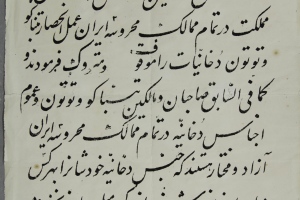 مملکت در تمام ممالک محروسه ایران عمل انحصار تنباکو
و توتون دخانیات را موقوف و متروک فرمودند و
کمافی السابق صاحبان و مالکین تنباکو و توتون و عموم
اجناس دخانیه در تمام ممالک محروسه ایران
آزاد و مختار هستند که جنس دخانیه خودشانرا بهر کس